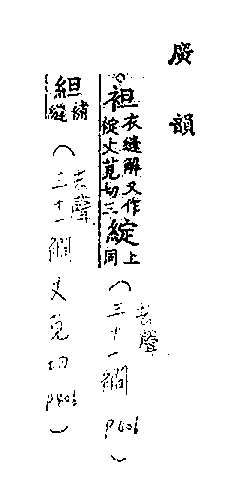 廣韻
袒衣縫解又作
綻丈莧切三綻上同
(去聲
三十一襇 P406)
組補縫
(去聲
三十一襇 丈莧切 P406)